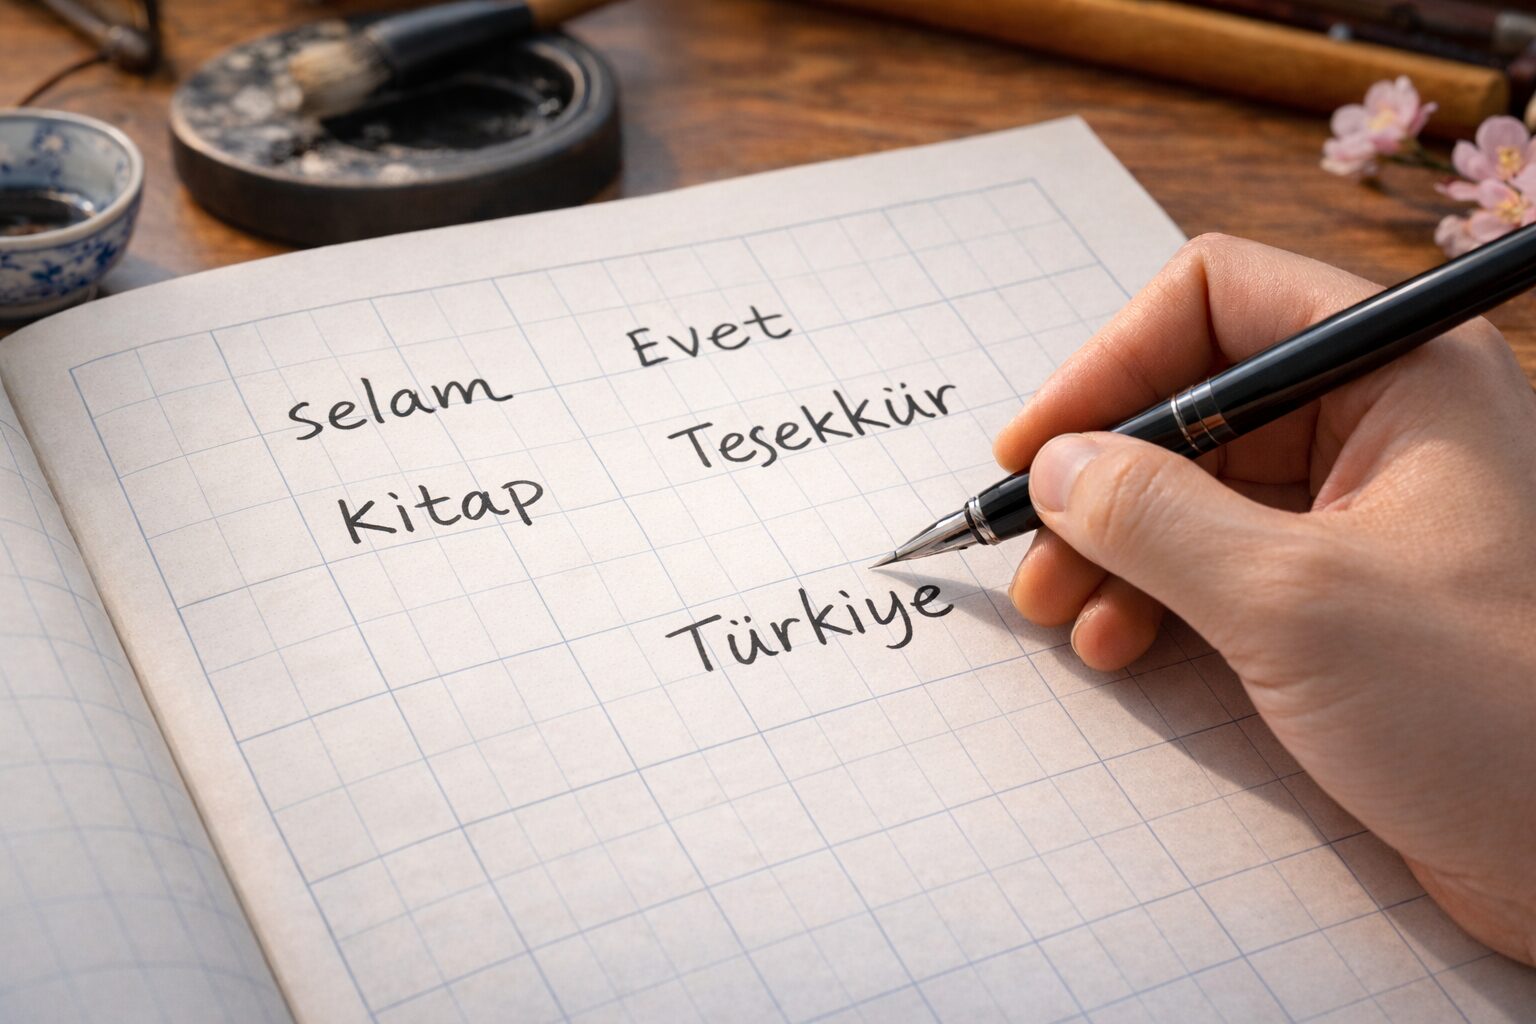 selam
Kitap
Evet
Teşekkür
Türkiye